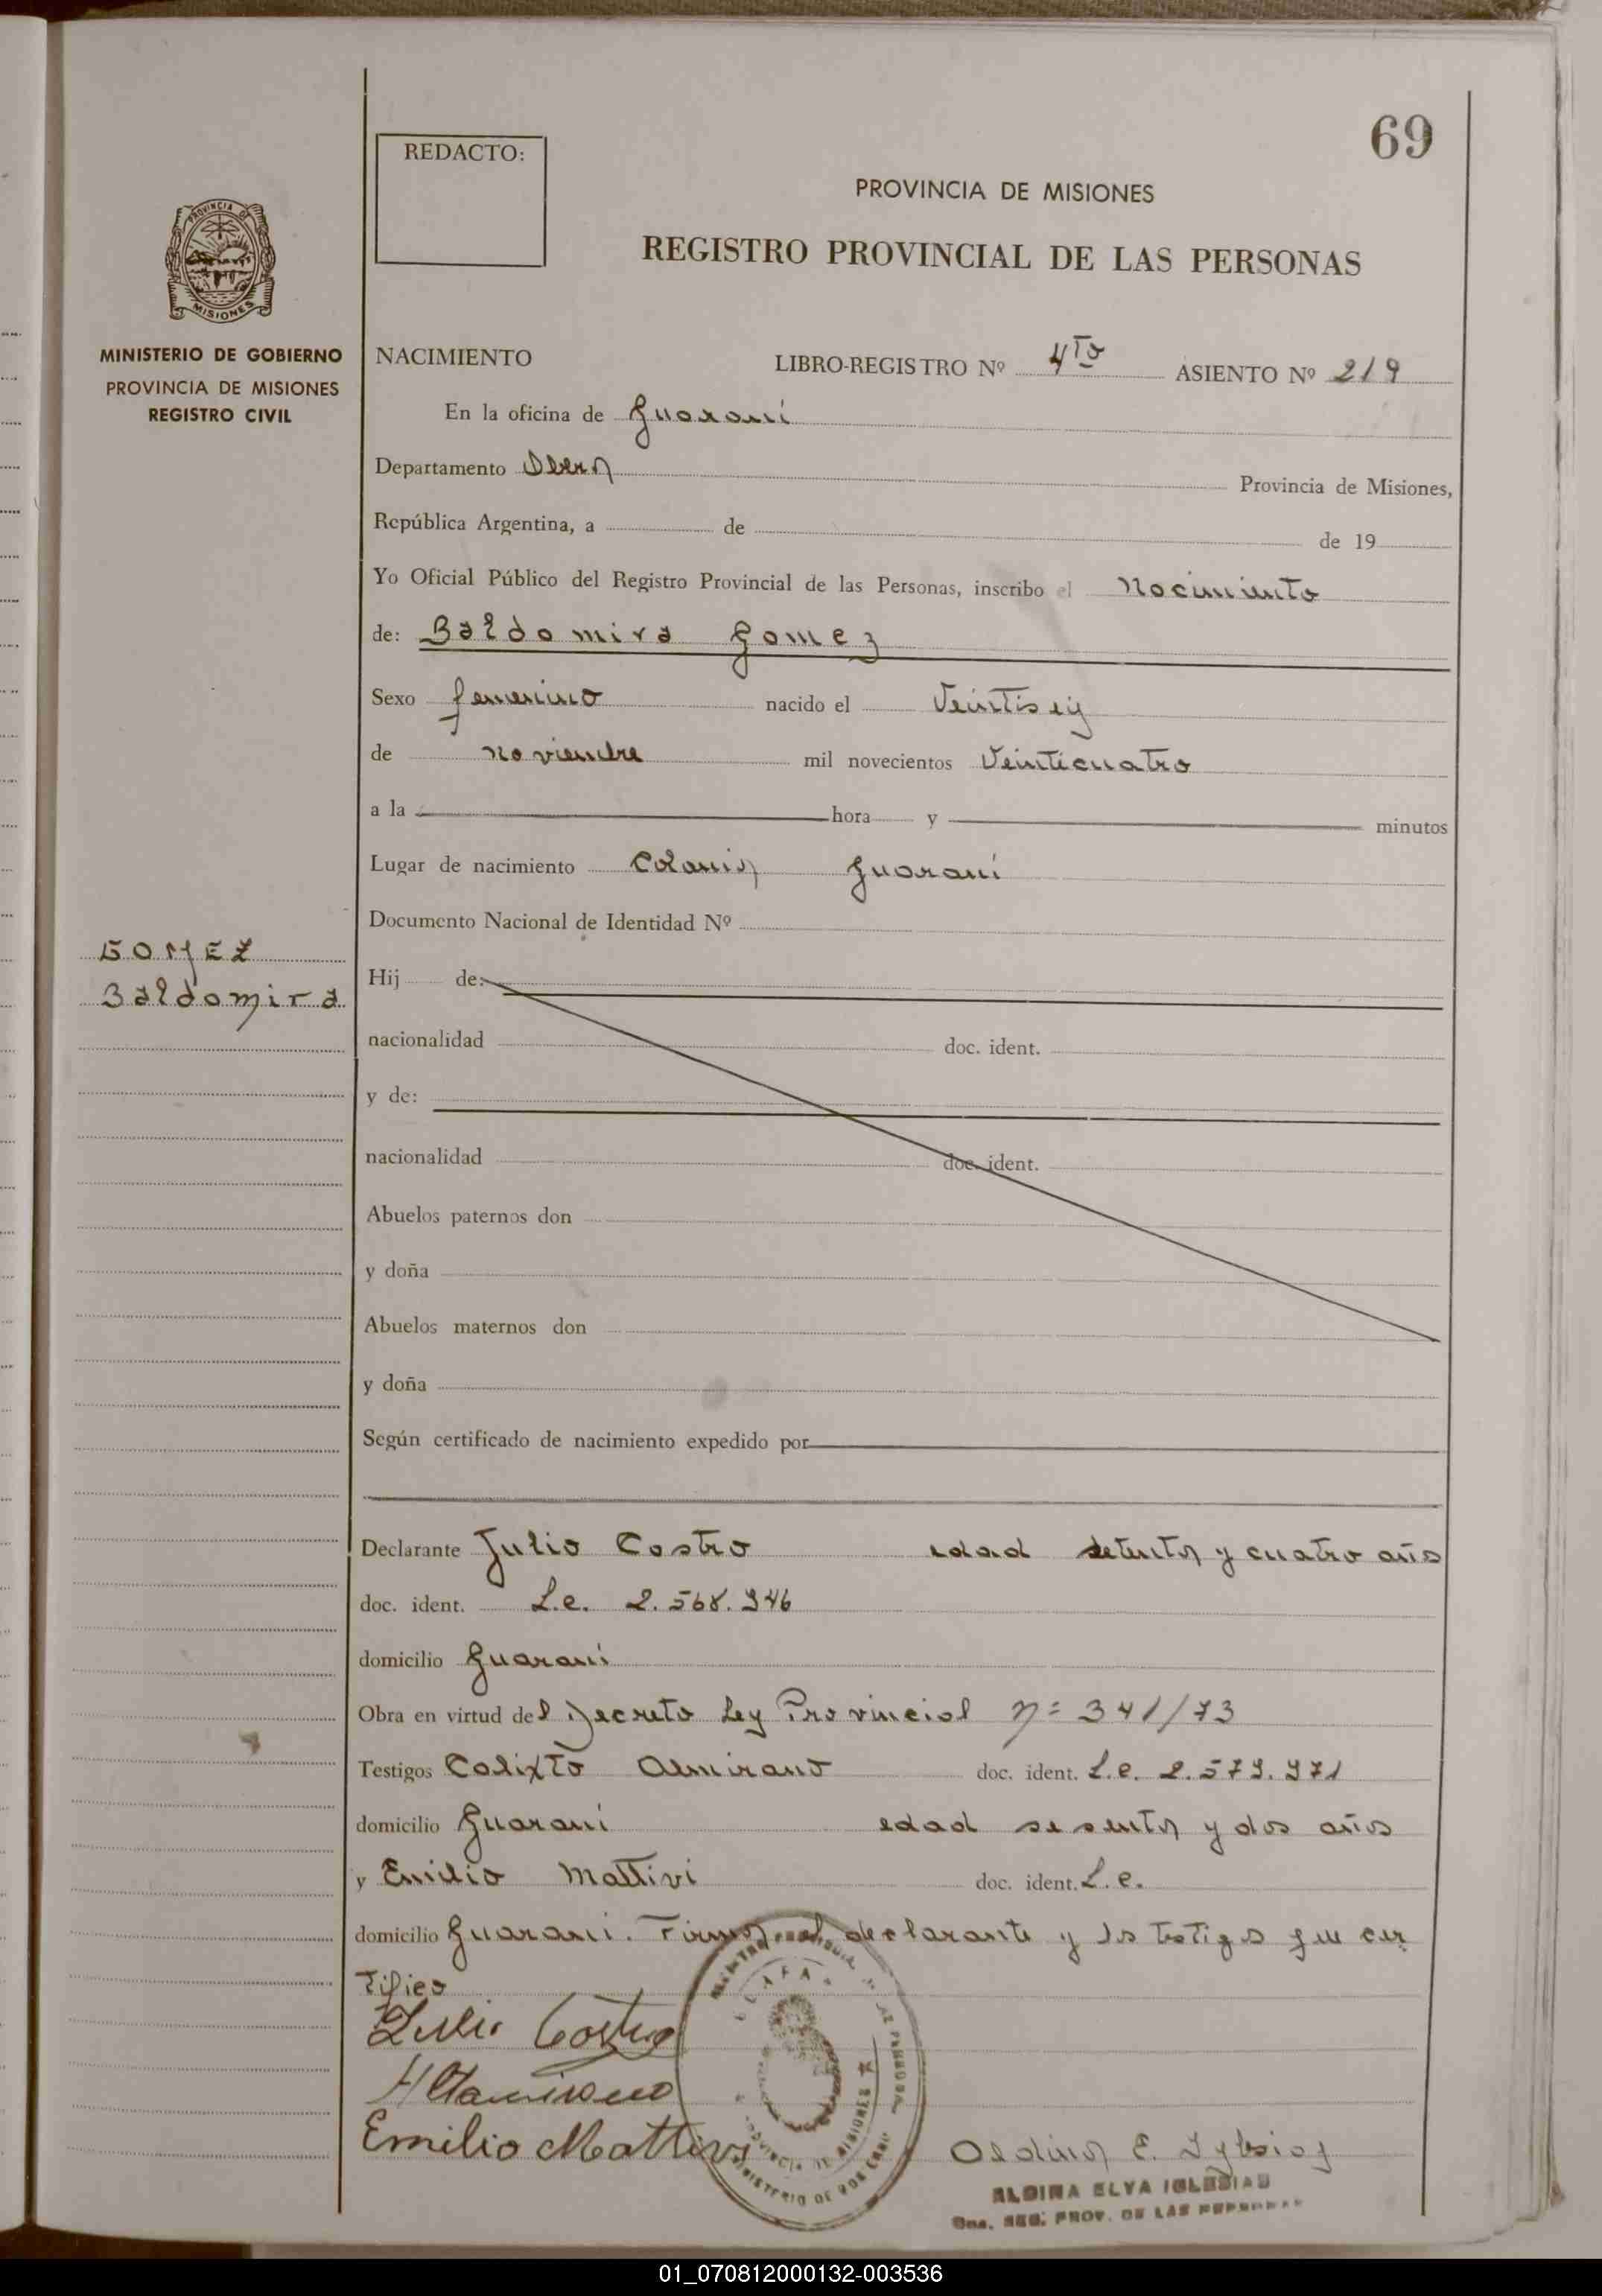 69
REDACTO:
PROVINCIA DE MISIONES
REGISTRO PROVINCIAL DE LAS PERSONAS
PROVINCIA DE
MISIONES
MINISTERIO DE GOBIERNO
PROVINCIA DE MISIONES
REGISTRO CIVIL
NACIMIENTO LIBRO-REGISTRO Nº 4to ASIENTO Nº 219
En la oficina de Guaraní
Departamento Oberá Provincia de Misiones,
República Argentina, a de de 19
Yo Oficial Público del Registro Provincial de las Personas, inscribo el Nacimiento
de: Baldomira Gomez
Sexo femenino nacido el Veintiseis
de noviembre mil novecientos Veinticuatro
a la hora y minutos
Lugar de nacimiento Colonia Guaraní
Documento Nacional de Identidad Nº
GOMEZ
Baldomira
Hij de:
nacionalidad doc. ident.
y de:
nacionalidad doc. ident.
Abuelos paternos don
y doña
Abuelos maternos don
y doña
Según certificado de nacimiento expedido por
Declarante Julio Castro edad setenta y cuatro años
doc. ident. L.e. 2.568.946
domicilio Guaraní
Obra en virtud del Decreto Ley Provincial nº 341/73
Testigos Calixto doc. ident. L.e. 2.579.971
domicilio Guaraní edad sesenta y dos años
y Emilio Mattivi doc. ident. L.e.
domicilio Guaraní. Firman el declarante y los testigos que cer
tifico
Julio Castro
Altamirano
Emilio Mattivi
PROVINCIA DE MISIONES
MINISTERIO DE GOBIERNO
Aldina E. Iglesias
ALDINA ELVA IGLESIAS
REG. PROV. DE LAS PERSONAS
01_070812000132-003536